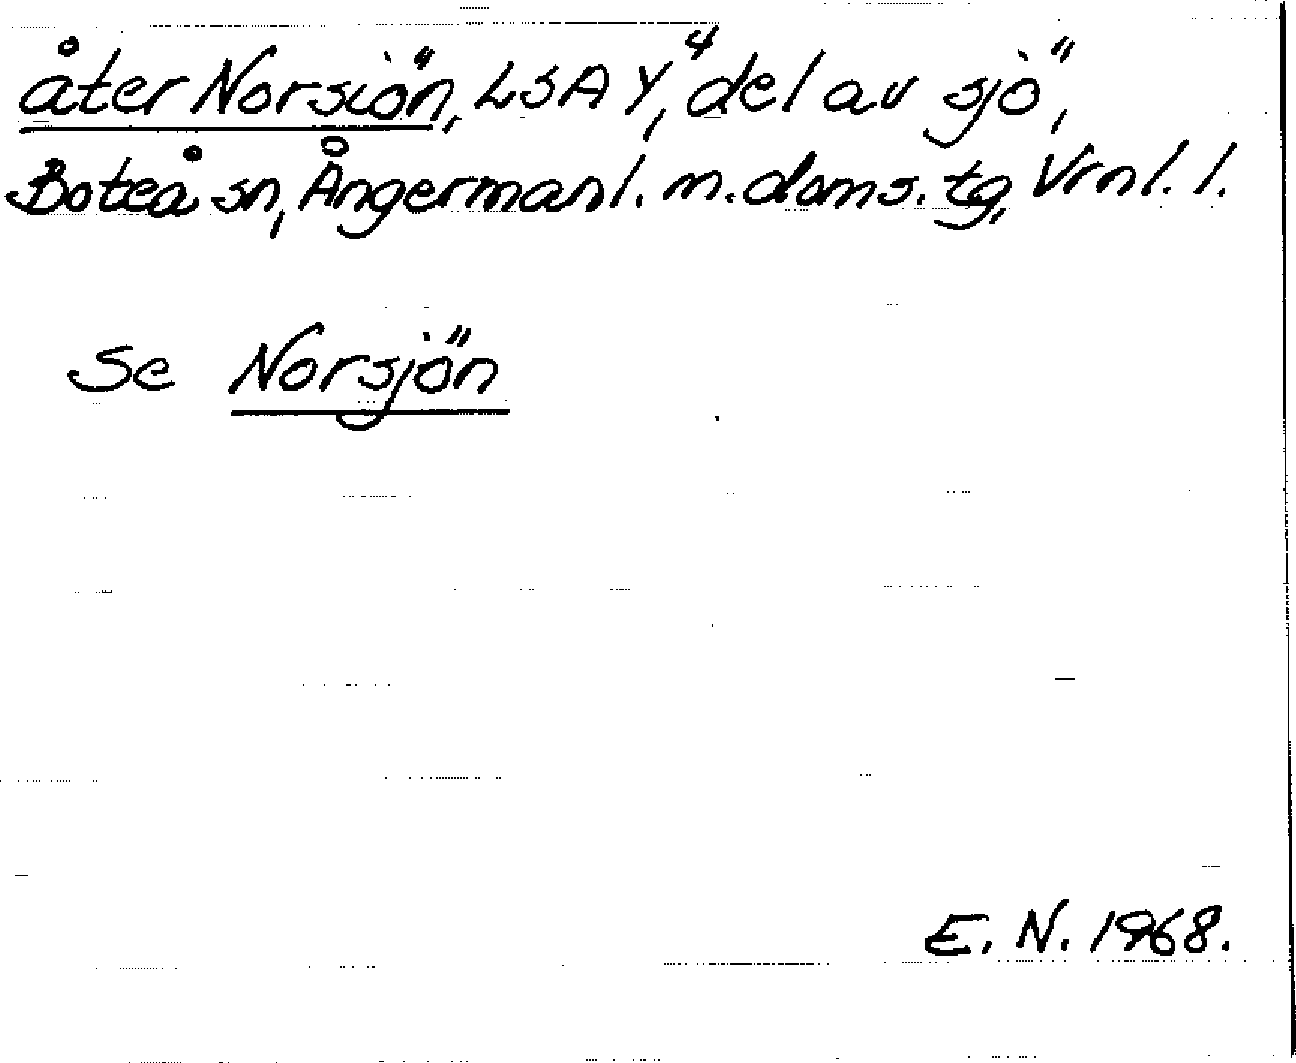 åter Norsiön, LSA Y4, "del av sjö",
Boteå sn, Ångermanl. m. doms. tg, Vrnl. l.
Se Norsjön
E. N. 1968.